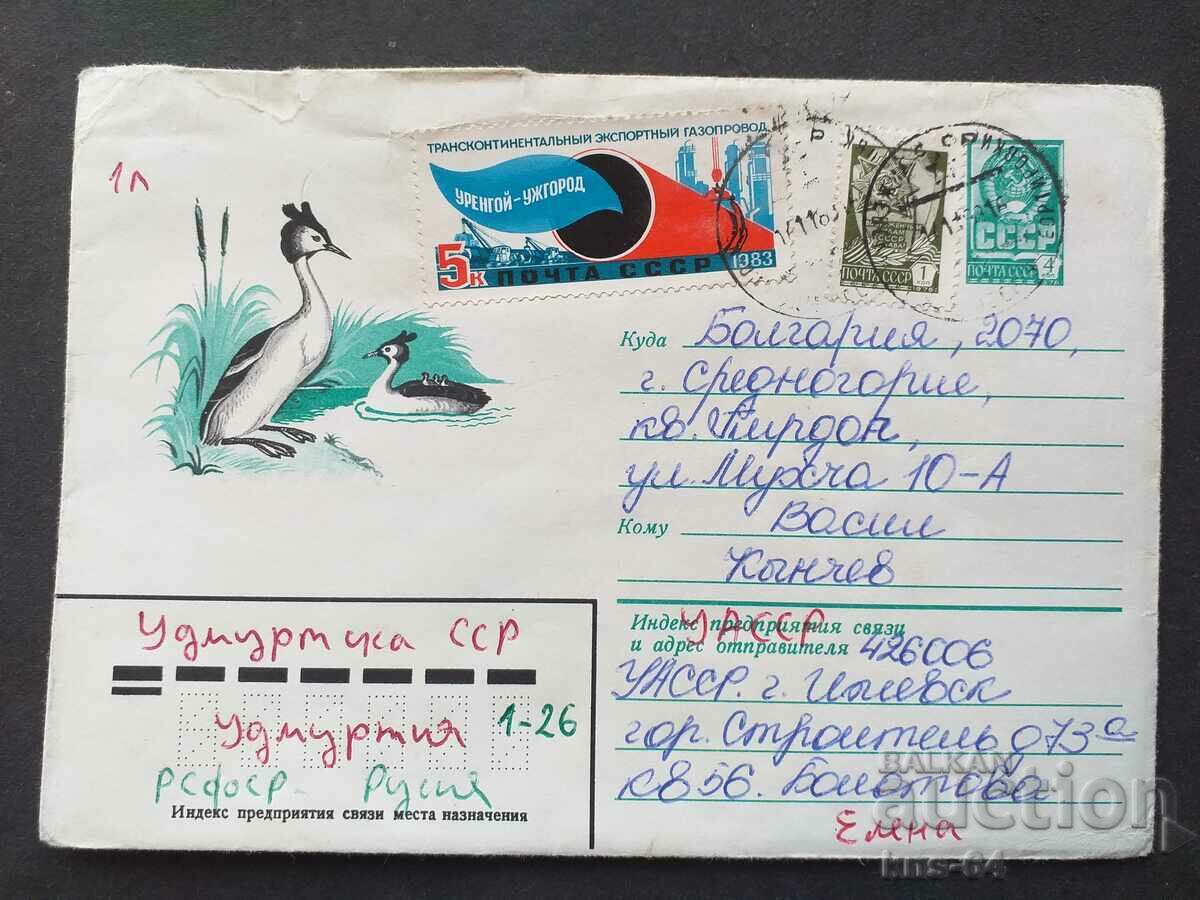 1л
ТРАНСКОНТИНЕНТАЛЬНЫЙ ЭКСПОРТНЫЙ ГАЗОПРОВОД
УРЕНГОЙ-УЖГОРОД
5к ПОЧТА СССР 1983
ПОЧТА СССР 1 коп
1976
СССР
ПОЧТА СССР 4 коп
Куда Болгария, 2070,
г. Средногорие,
кв. Пирдоп,
ул. Мусча 10-А
Кому Васил
Кынчев
Индекс предприятия связи
и адрес отправителя 426006
УАССР
УАССР. г. Ижевск
гор. Строитель д 73а
кв 56. Болотова
Елена
Удмуртска ССР
Удмуртия 1-26
РСФСР- Русия
Индекс предприятия связи места назначения
BALKAN
auction
kns-64